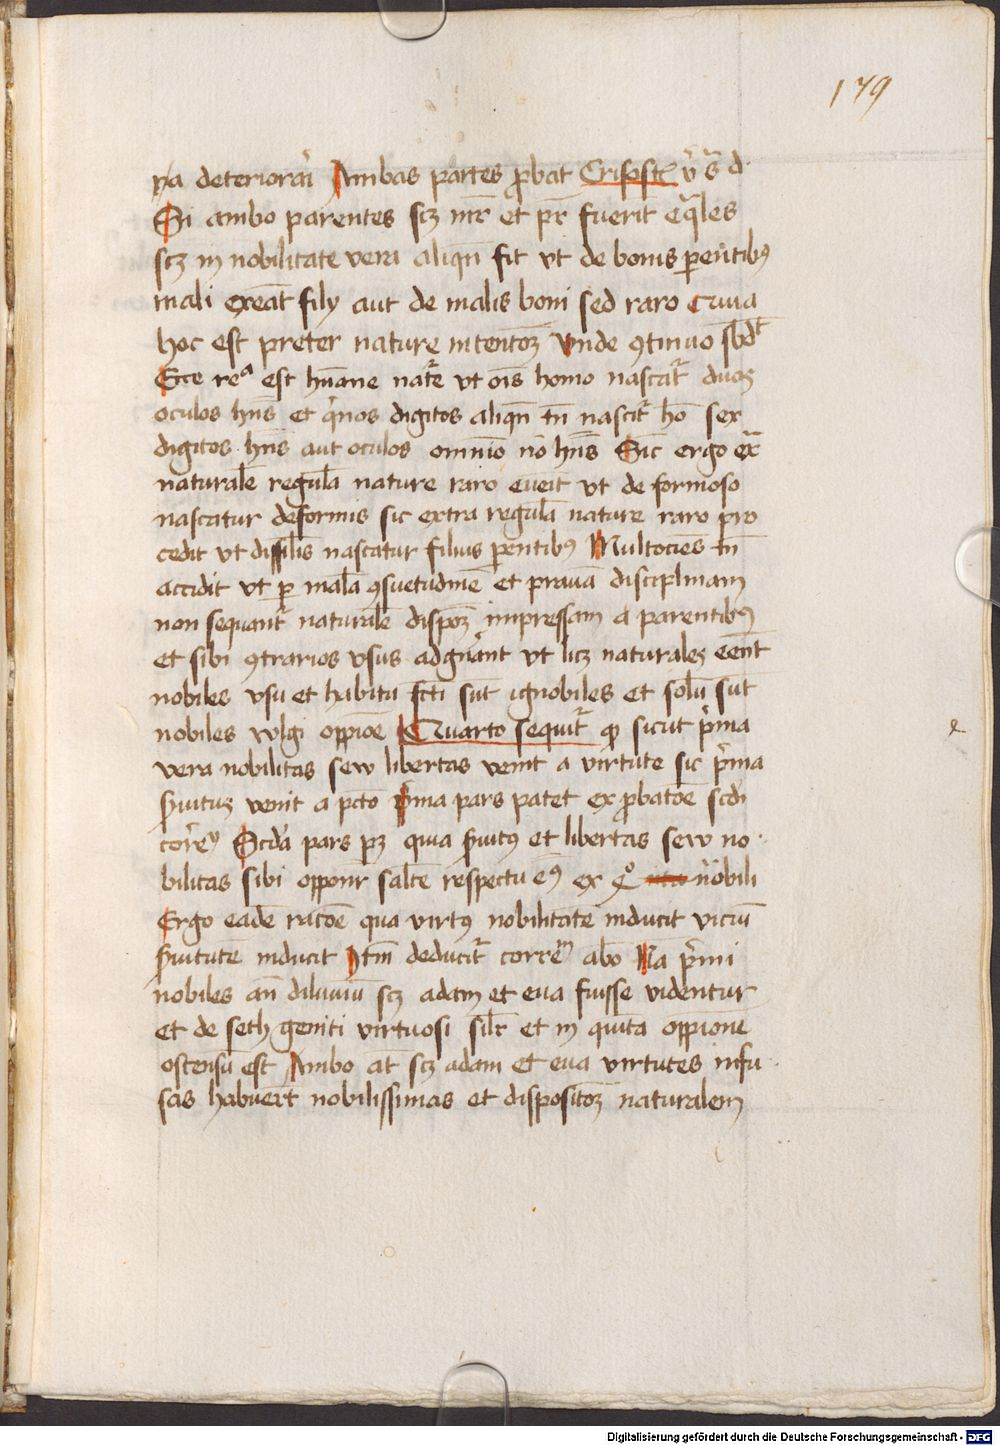 179
na deteriorari Ambas partes ꝓbat Crisost
Si ambo parentes scꝫ mr̄ et pr̄ fuerit eq̄les
scꝫ in nobilitate vera aliqn̄ fit vt de bonis parentibꝰ
mali exeāt filij aut de malis boni sed raro
hoc est preter nature intentōꝫ Vnde ꝯtinuo sbdt̄
Ecce rea est hūane natr̄e vt oīs homo nascat᷑ duos
oculos hn̄s et qͥnos digitos aliqn̄ tn̄ nascit᷑ hō sex
digitos hn̄s aut oculos omnīo nō hn̄s Sic ergo ex̄
naturalē regulā nature raro eueīt vt de formoso
nascatur deformis sic extra regulā nature raro pro
cedit vt dissiłis nascatur filius parentibꝰ Multociēs tn̄
accidit vt ꝑ malā ꝯsuetudinē et prauā disciplinam
non sequant᷑ naturalē dispōꝫ impressam a parentibꝰ
et sibi ꝯtrarios vsus adgnānt vt licꝫ naturales eēnt
nobiles vsu et habitu fc̄ti sūt ignobiles et solū sūt
nobiles wlgi oppioē Quarto sequit᷑ ꝙ sicut pͥma
vera nobilitas sew libertas venit a virtute sic pͥma
ẜuitus venit a pctō pͥma pars patet ex ꝓbatōe scdi
corrͥ Scd̄a pars pꝫ quia ẜuitꝰ et libertas sew no
bilitas sibi opponūr saltē respectu eiꝰ ex qͦ nobili
Ergo eadē racōe qua virtꝰ nobilitatē inducit viciū
ẜuitutē inducit Itm̄ deducit᷑ correᵐ abo Na pͥmi
nobiles an̄ diluuiū scꝫ adam et eua fuisse videntur
et de seth geniti virtuosi silr̄ et in quita oppione
ostensū est Ambo at̄ scꝫ adam et eua virtutes infu
sas habuerт nobilissimas et dispositōꝫ naturalem
Digitalisierung gefördert durch die Deutsche Forschungsgemeinschaft - DFG